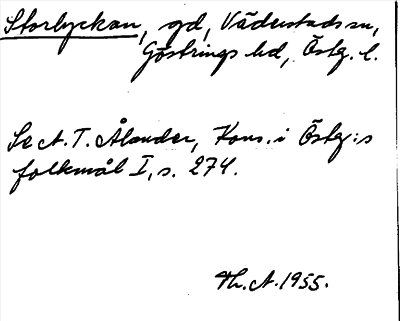 Storlyckan, gd, Väderstads sn,
Göstrings hd, Östg. l.
Se A. T. Ålander, Kons. i Östg:s
folkmål I, s. 274.
Th. A. 1955.